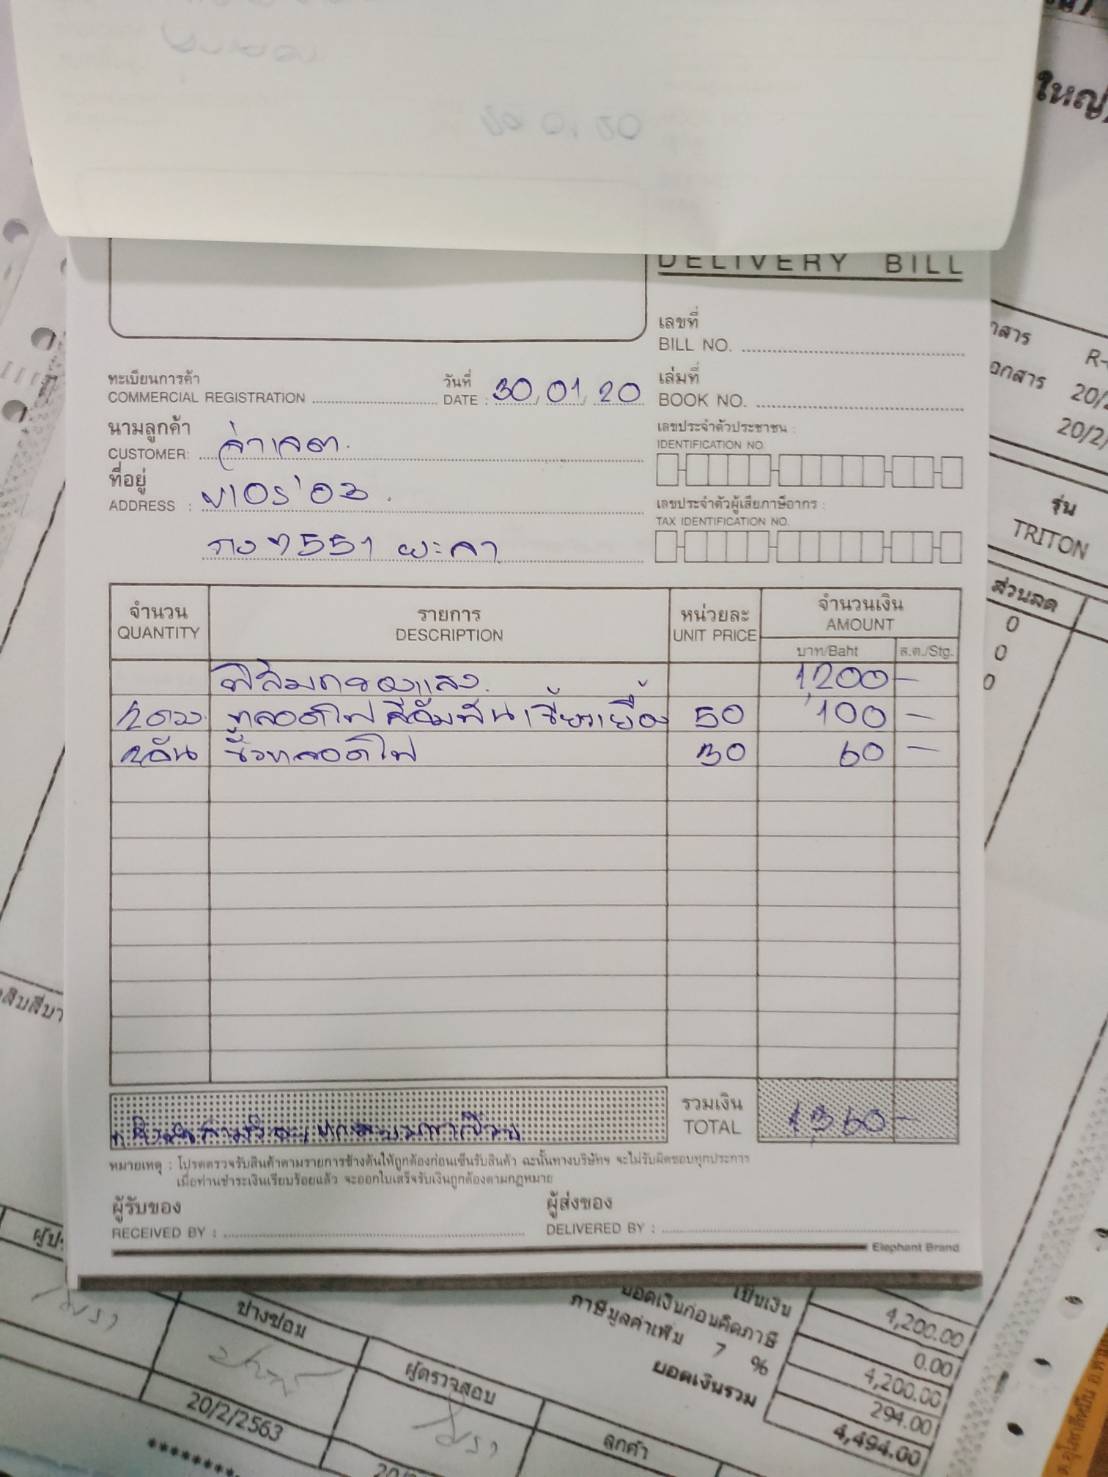 ใหญ่
DELIVERY BILL
เลขที่
BILL NO.
ทะเบียนการค้า
COMMERCIAL REGISTRATION
วันที่
DATE : 30/01/20
เล่มที่
BOOK NO.
นามลูกค้า
CUSTOMER:
เลขประจำตัวประชาชน :
IDENTIFICATION NO.
ที่อยู่
ADDRESS : VIOS'03.
เลขประจำตัวผู้เสียภาษีอากร :
TAX IDENTIFICATION NO.
5551 พะเยา
จำนวน
QUANTITY
รายการ
DESCRIPTION
หน่วยละ
UNIT PRICE
จำนวนเงิน
AMOUNT
บาท/Baht
ส.ต./Stg.
ฟิล์มกรองแสง. 1,200 –
2ดวง หลอดไฟ 50 100 –
2อัน ขั้วหลอดไฟ 30 60 –
รวมเงิน
TOTAL
1,360 –
หมายเหตุ : โปรดตรวจรับสินค้าตามรายการข้างต้นให้ถูกต้องก่อนเซ็นรับสินค้า ฉะนั้นทางบริษัทฯ จะไม่รับผิดชอบทุกประการ
เมื่อท่านชำระเงินเรียบร้อยแล้ว จะออกใบเสร็จรับเงินถูกต้องตามกฎหมาย
ผู้รับของ
RECEIVED BY :
ผู้ส่งของ
DELIVERED BY :
Elephant Brand
รุ่น
TRITON
ส่วนลด
0
0
0
เป็นเงิน 4,200.00
0.00
ยอดเงินก่อนคิดภาษี 4,200.00
ภาษีมูลค่าเพิ่ม 7 % 294.00
ยอดเงินรวม 4,494.00
ผู้ตรวจสอบ
ลูกค้า
20/2/2563